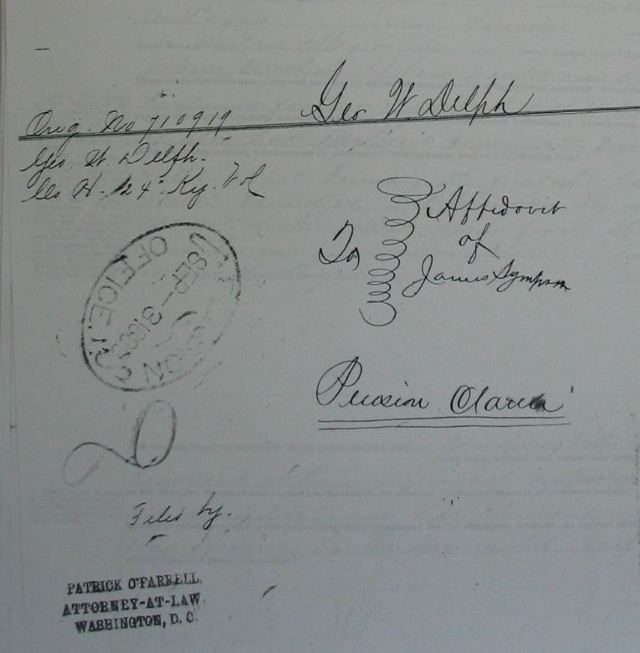 Geo W Delph
Orig. No 710919
Geo. W. Delph.
Co H. 24" Ky. Vol
To Affidavit
of
James Sympson
Pension Claim
U.S. PENSION
SEP
OFFICE.
Filed by.
PATRICK O'FARRELL,
ATTORNEY-AT-LAW
WASHINGTON, D. C.